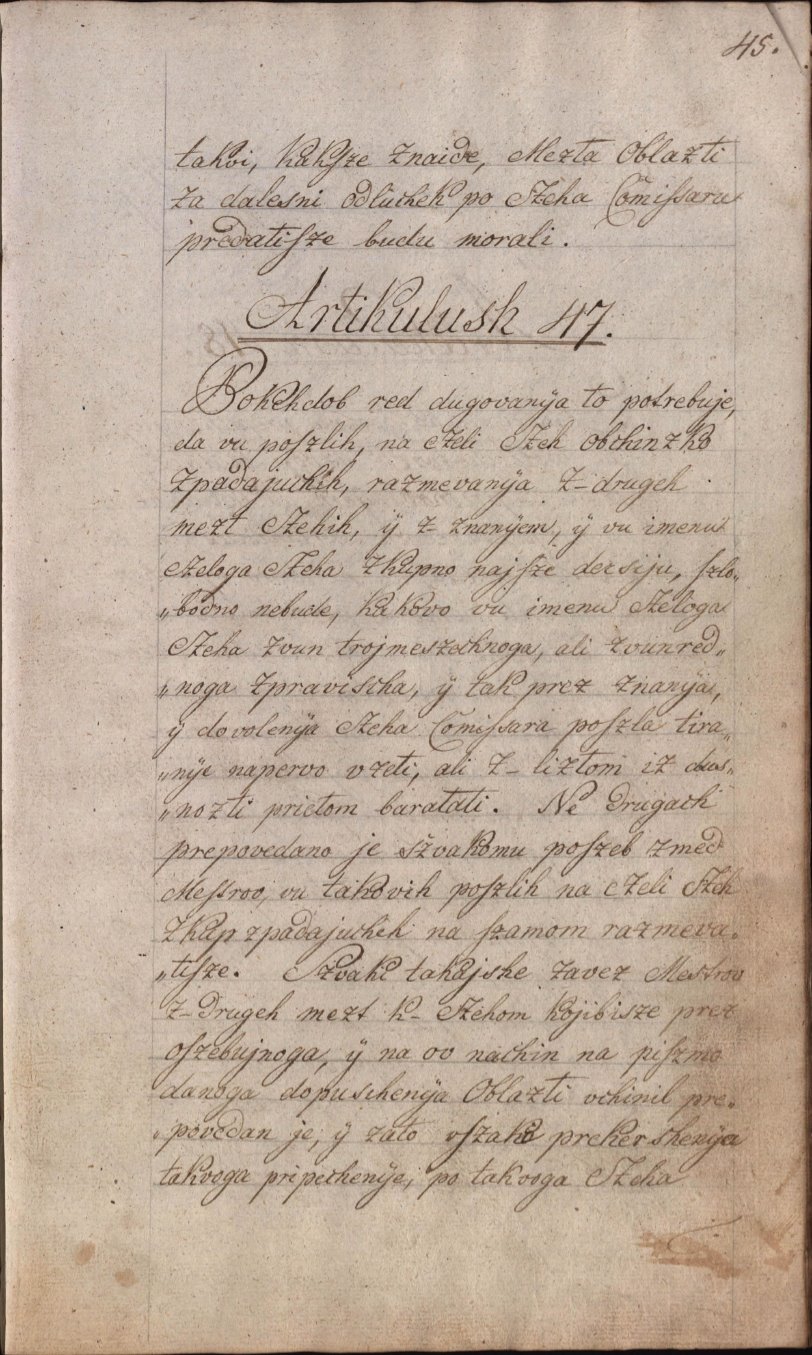 45.
takvi, kakſze znaide, Mezta Oblazti
za dalesni odluchek po Czeha Comiſsaru
predatiſze budu morali.
Artikulush 47.
Bokehdob red dugovanya to potrebuje,
da vu poſzlih, na czeli Czeh obchinzko
zpadajuchih, razmevanya z-drugeh
mezt Czehih, ÿ z-znanyem, ÿ vu imenu
czeloga Czeha zkupno najſze dersiju, ſzlo„
„bodno nebude, kakovo vu imenu Czeloga
Czeha zvun trojmeszechnoga, ali zvunred„
„noga zpravischa, ÿ tak prez znanya,
ÿ dovolenya Czeha Comiſsara poſzla tira„
„nye napervo vzeti, ali z-liztom iz dus„
„nozti prietom baratati. Ne drugach
prepovedano je szvakomu poſzeb zmed
Meſtrov, vu takovih poſzlih na czeli Czeh
zkup zpadajucheh na ſzamom razmeva„
„tiſze. Szvaki takajshe zavez Mestrov
z-drugeh mezt k-Czehom kojibisze prez
oſzebujnoga, ÿ na ov nachin na piſzmo
danoga dopuschenya Oblazti vchinil pre„
„povedan je, ÿ zato vſzako prekershenya
takvoga pripechenye, po takvoga Czeha